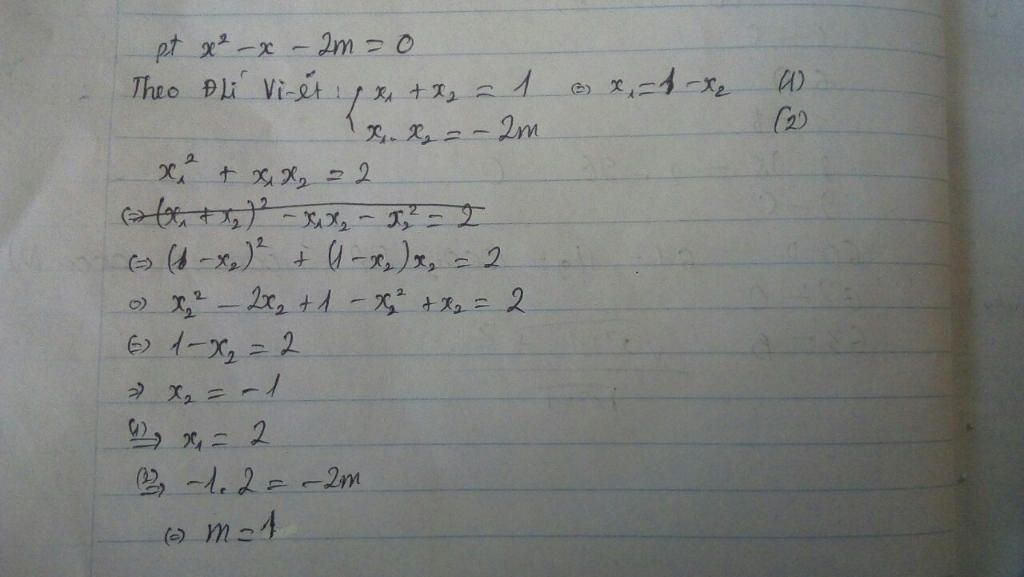 pt x² - x - 2m = 0
Theo ĐLí Vi-ét: { x₁ + x₂ = 1 (=) x₁ = 1 - x₂ (1)
x₁. x₂ = -2m (2)
x₁² + x₁x₂ = 2
(=> (x₁ + x₂)² - x₁x₂ - x₂² = 2
(=) (1 - x₂)² + (1 - x₂)x₂ = 2
(=) x₂² - 2x₂ + 1 - x₂² + x₂ = 2
(=) 1 - x₂ = 2
=> x₂ = -1
(1) => x₁ = 2
(2) => -1. 2 = -2m
(=) m = 1